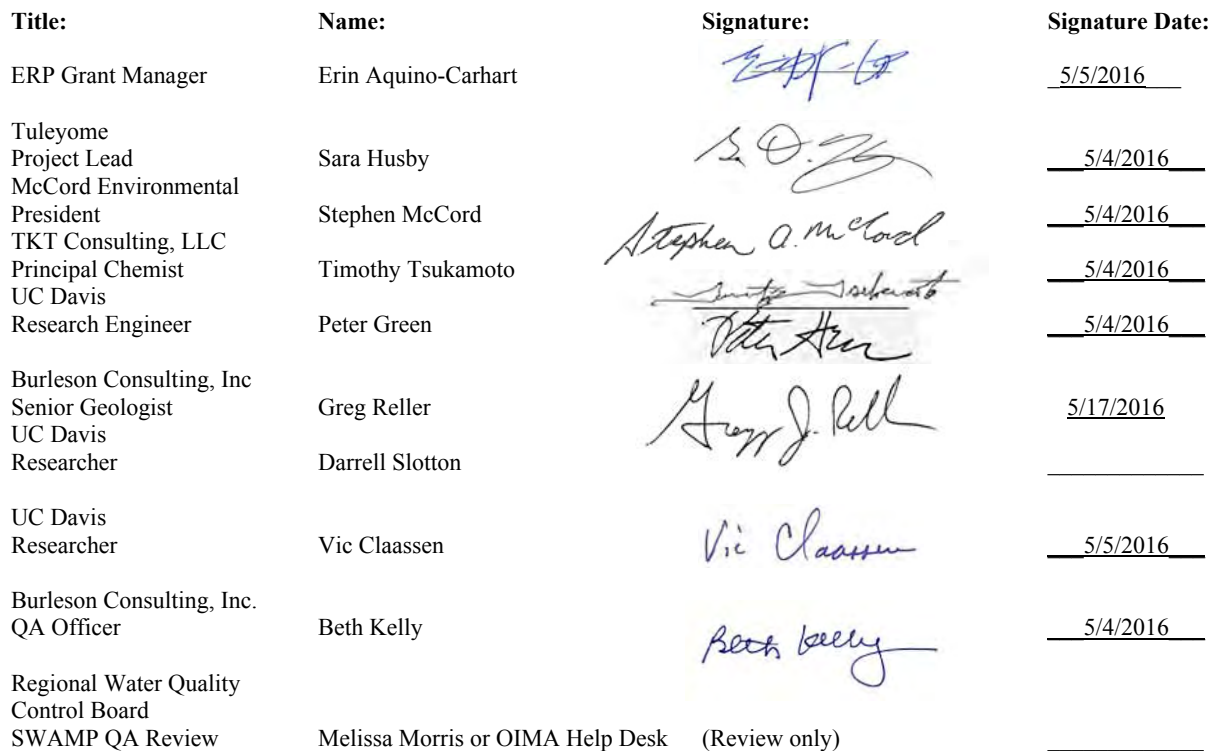 Title: Name: Signature: Signature Date:
ERP Grant Manager Erin Aquino-Carhart 5/5/2016
Tuleyome
Project Lead Sara Husby 5/4/2016
McCord Environmental
President Stephen McCord Stephen A. McCord 5/4/2016
TKT Consulting, LLC
Principal Chemist Timothy Tsukamoto 5/4/2016
UC Davis
Research Engineer Peter Green Peter Green 5/4/2016
Burleson Consulting, Inc
Senior Geologist Greg Reller Gregg J. Rell 5/17/2016
UC Davis
Researcher Darrell Slotton
UC Davis
Researcher Vic Claassen Vic Claassen 5/5/2016
Burleson Consulting, Inc.
QA Officer Beth Kelly Beth Kelly 5/4/2016
Regional Water Quality
Control Board
SWAMP QA Review Melissa Morris or OIMA Help Desk (Review only)